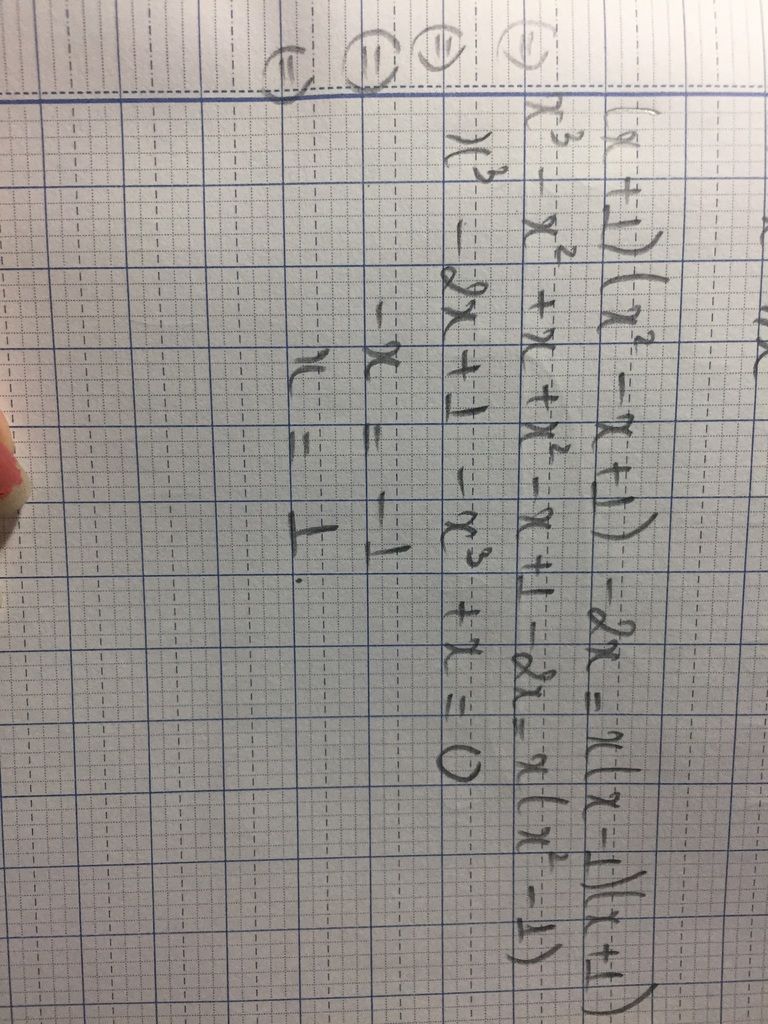 (x+1)(x² - x + 1) - 2x = x(x-1)(x+1)
(=) x³ - x² + x + x² - x + 1 - 2x = x(x² - 1)
(=) x³ - 2x + 1 - x³ + x = 0
(=) -x = -1
(=) x = 1.